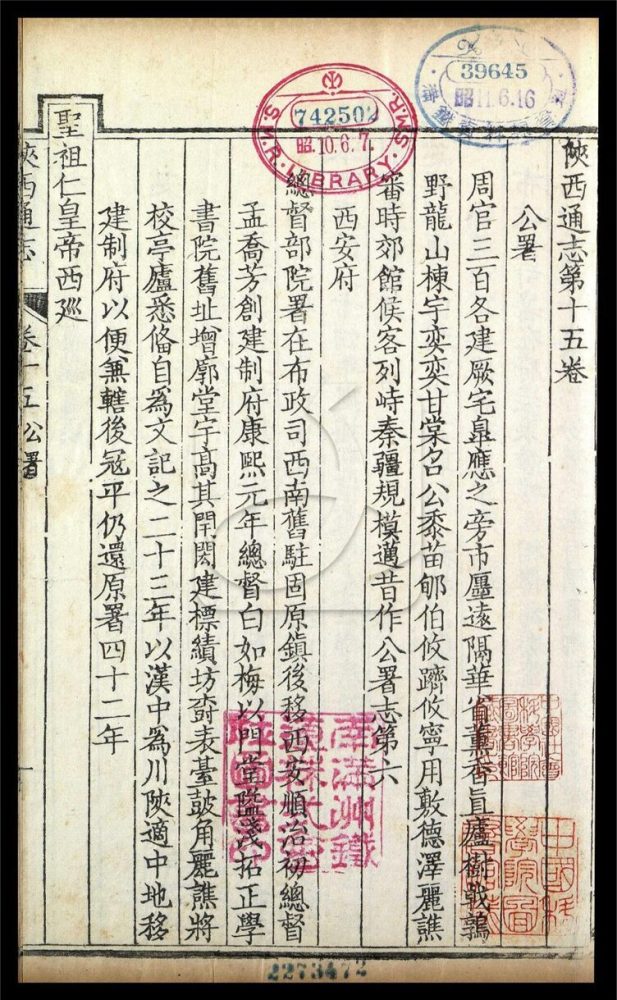 陝西通志第十五卷
公署
周官三百各建厥宅臯應之旁市廛遠隔華省薰香直廬樹戟鶉
野龍山棟宇奕奕甘棠召公黍苗郇伯攸躋攸寧用敷德澤麗譙
審時郊館候客列峙秦疆規模邁昔作公署志第六
西安府
總督部院署在布政司西南舊駐固原鎮後移西安順治初總督
孟喬芳創建制府康熙元年總督白如梅以門堂隘淺拓正學
書院舊址增廓堂宇高其閈閎建標績坊奇表臺鼓角麗譙將
校亭廬悉俻自為文記之二十三年以漢中為川陝適中地移
建制府以便兼轄後冦平仍還原署四十二年
聖祖仁皇帝西廵
陝西通志 卷十五 公署
742502
昭10.6.7.
S.M.R. LIBRARY. S.M.R.
39645
昭11.6.16
2273472